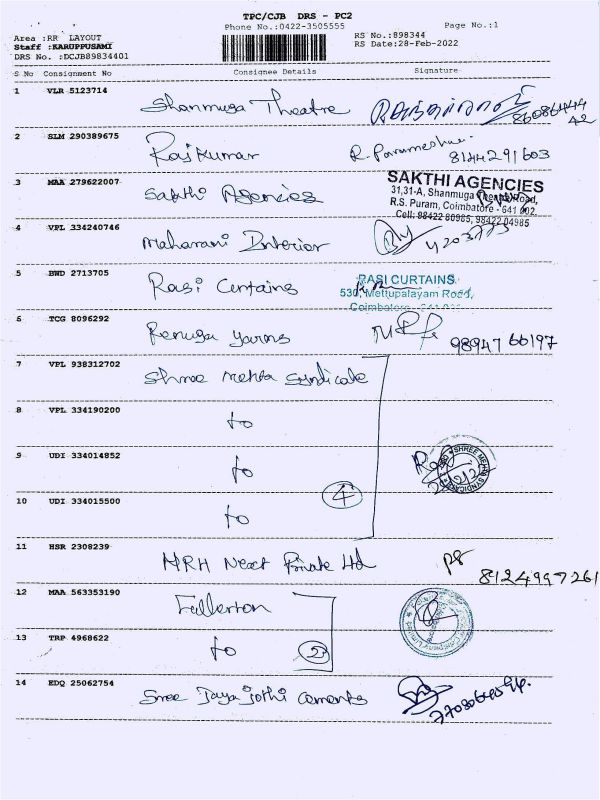 TPC/CJB DRS - PC2
Phone No.:0422-3505555
Page No.:1
Area :RR LAYOUT
Staff :KARUPPUSAMI
DRS No. :DCJB89834401
RS No.:898344
RS Date:28-Feb-2022
S No Consignment No Consignee Details Signature
1 VLR 5123714 Shanmuga Theatre
2 SLM 290389675 Rajkumar R. Parameshwa 8144291603
3 MAA 279622007 Sakthi Agencies
SAKTHI AGENCIES
31,31-A, Shanmuga Theatre Road,
R.S. Puram, Coimbatore - 641 002.
Cell: 98422 80985, 98422 04985
4 VPL 334240746 Maharani Interior
5 BWD 2713705 Rasi Curtains
RASI CURTAINS
530, Mettupalayam Road,
Coimbatore
6 TCG 8096292 Renuga yarns 98947 66197
7 VPL 938312702 Shree Mehta Syndicate
8 VPL 334190200 to
9 UDI 334014852 to
SHREE MEHTA SYNDICATE
10 UDI 334015500 to
4
11 HSR 2308239 MRH Next Private Ltd
8124997261
12 MAA 563353190 Fullerton
13 TRP 4968622 to 2
14 EDQ 25062754 Sree Jaya jothi cements